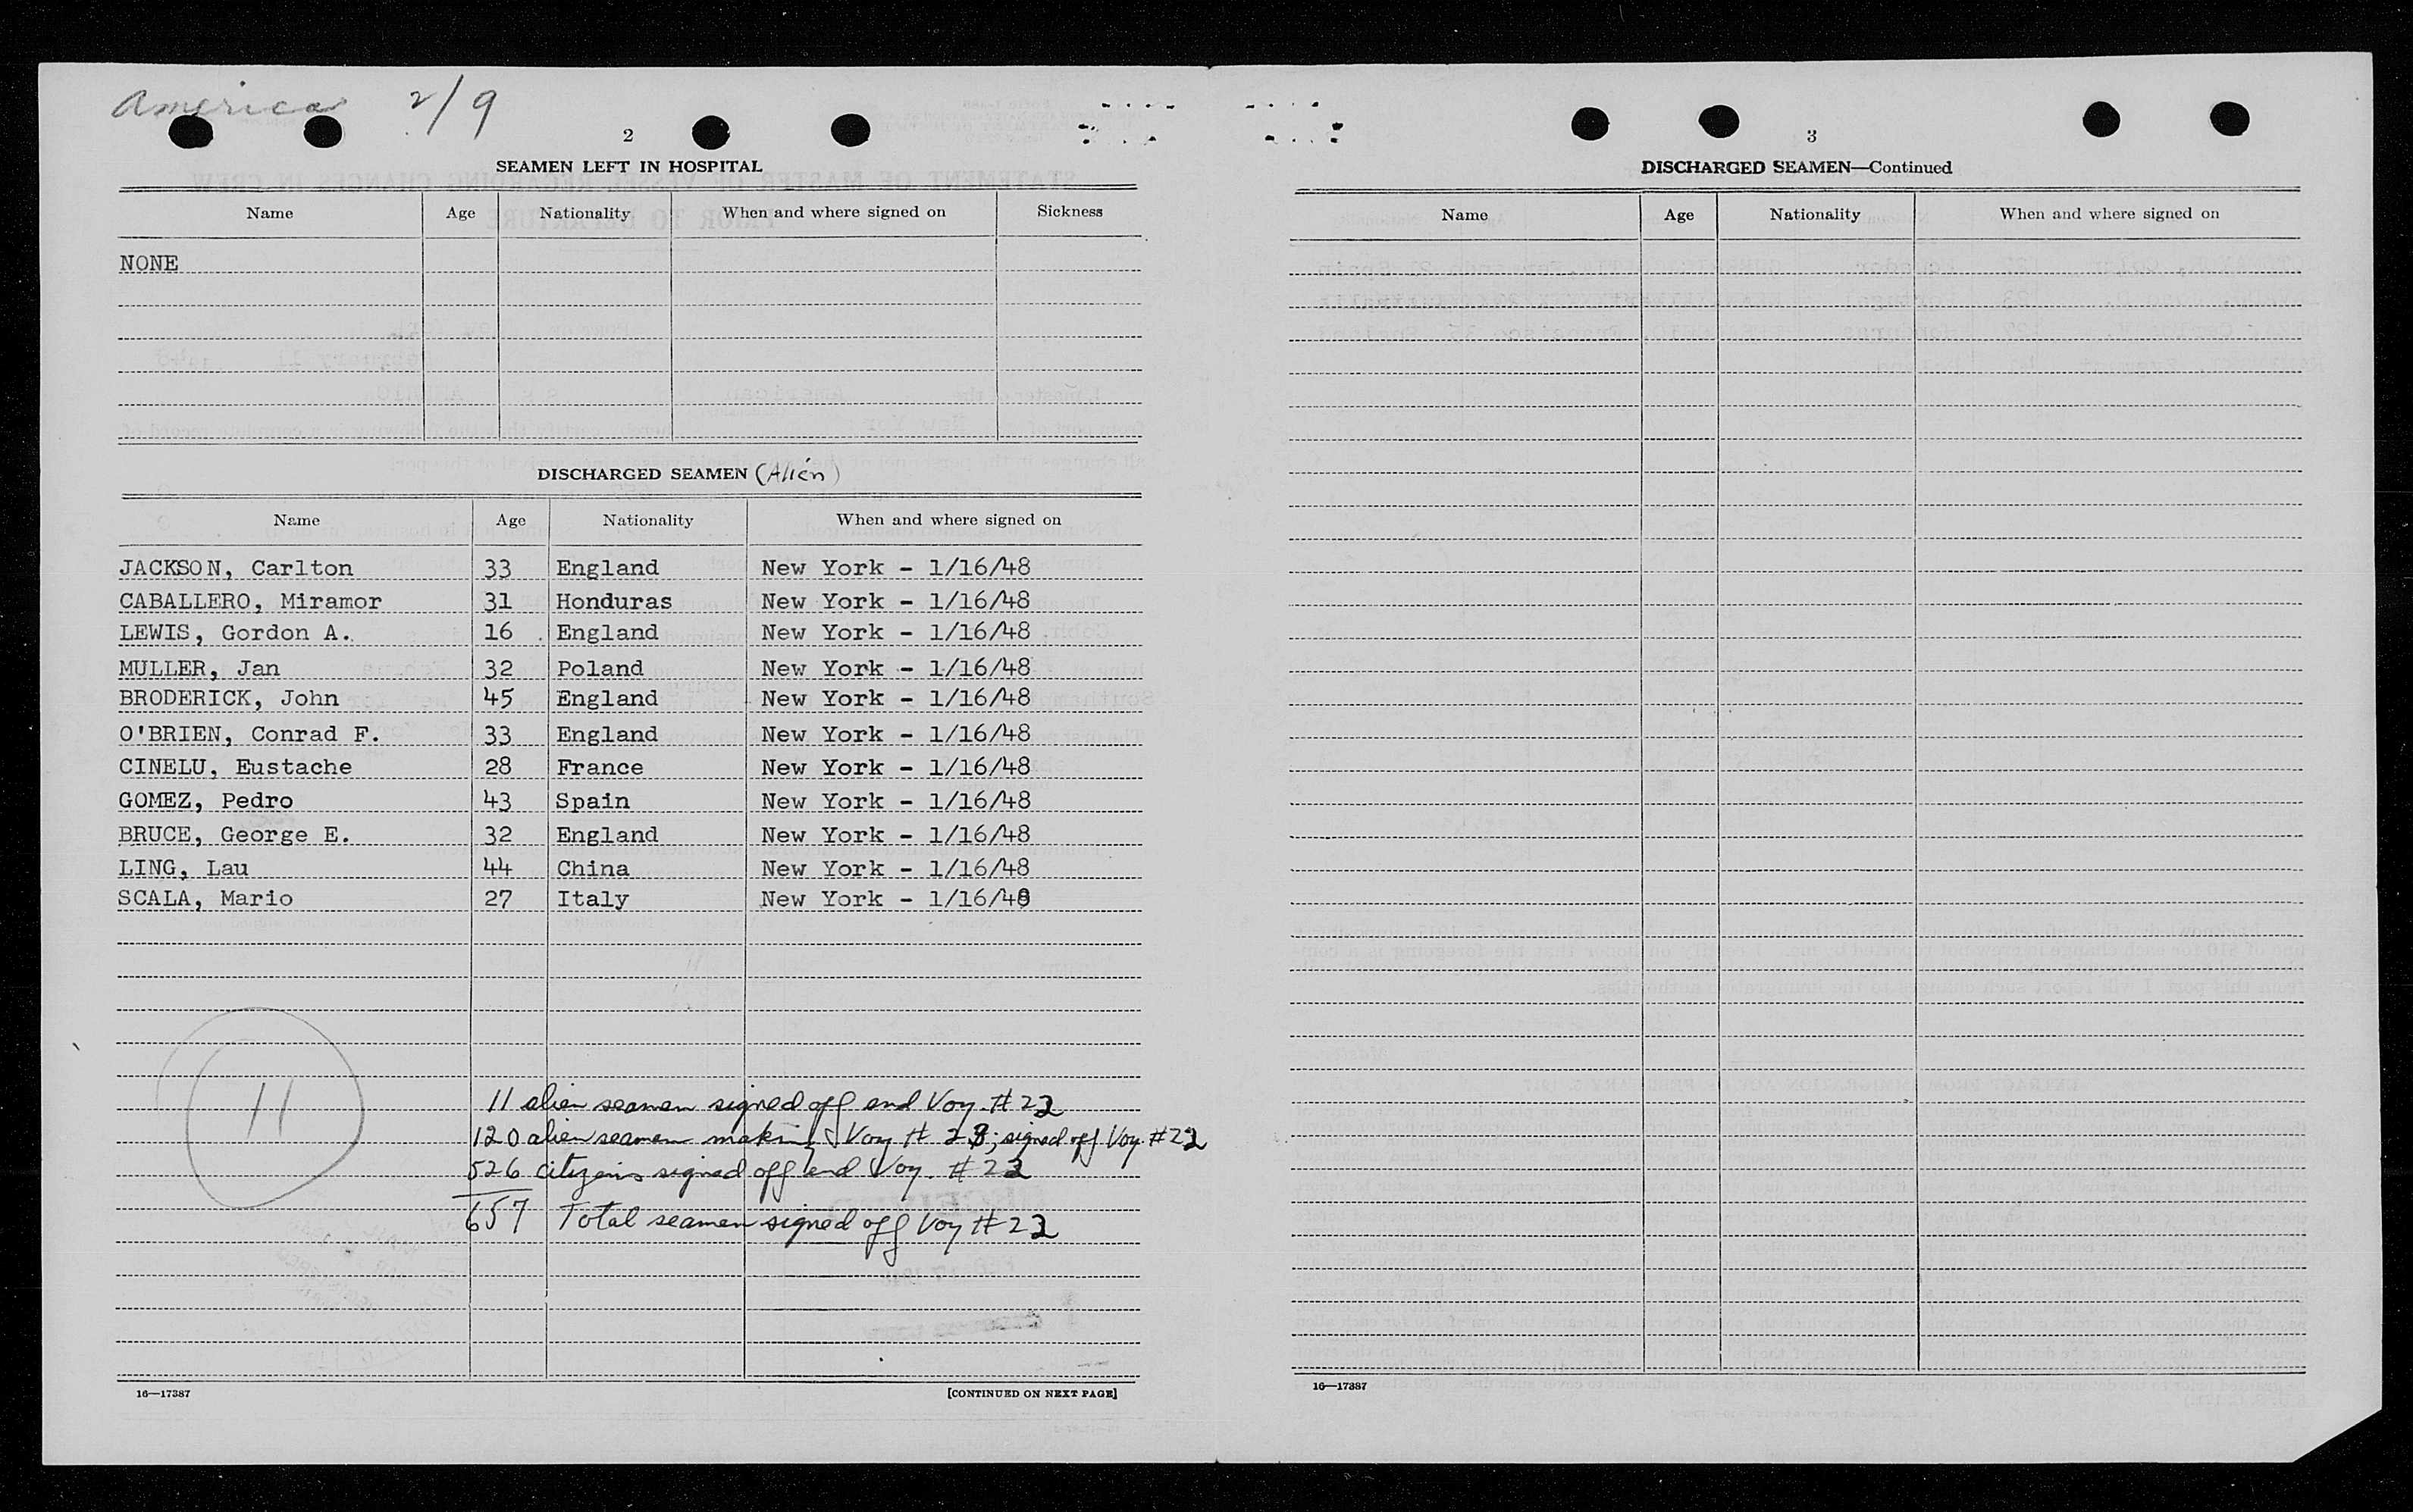 America 2/9
2
SEAMEN LEFT IN HOSPITAL
Name Age Nationality When and where signed on Sickness
NONE
DISCHARGED SEAMEN (Alien)
Name Age Nationality When and where signed on
JACKSON, Carlton 33 England New York - 1/16/48
CABALLERO, Miramor 31 Honduras New York - 1/16/48
LEWIS, Gordon A. 16 England New York - 1/16/48
MULLER, Jan 32 Poland New York - 1/16/48
BRODERICK, John 45 England New York - 1/16/48
O'BRIEN, Conrad F. 33 England New York - 1/16/48
CINELU, Eustache 28 France New York - 1/16/48
GOMEZ, Pedro 43 Spain New York - 1/16/48
BRUCE, George E. 32 England New York - 1/16/48
LING, Lau 44 China New York - 1/16/48
SCALA, Mario 27 Italy New York - 1/16/48
11
11 alien seamen signed off end Voy. # 22
120 alien seamen making Voy # 23; signed off Voy. # 22
526 citizens signed off end Voy. # 22
657 Total seamen signed off Voy # 22
16—17387
[CONTINUED ON NEXT PAGE]
3
DISCHARGED SEAMEN—Continued
Name Age Nationality When and where signed on
16—17387